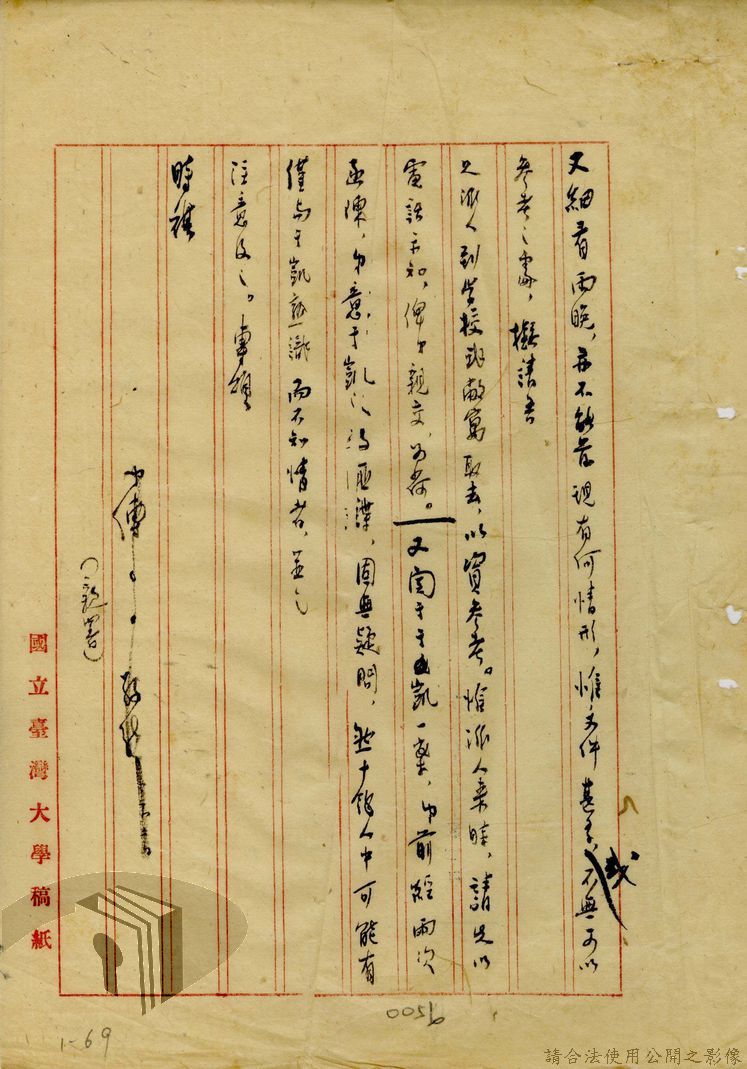 又細看兩晚,亦不能發現有何情形,惟文件甚多,或不無可以
參考之處,擬請吾
兄派人到學校或敝寓取去,以資參考。惟派人來時,請先以
電話示知,俾弟親交,為荷。又關于于凱一案,弟前經兩次
函陳,弟意于凱之為匪諜,固無疑問,然十餘人中可能有
僅與于凱熟識而不知情者,并乞
注意及之。專頌
時祺
弟傅
(親署)
國立臺灣大學稿紙
9500
1-69
請合法使用公開之影像